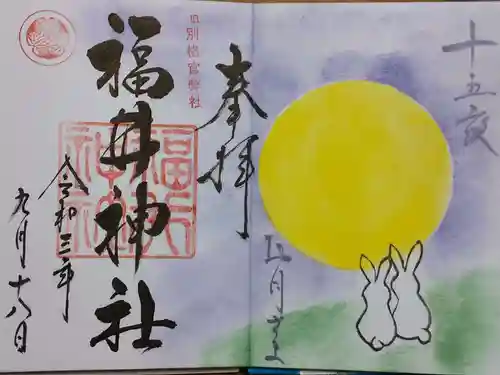 十五夜
お月さま
奉拝
旧別格官幣社
福井神社
令和三年
九月十八日